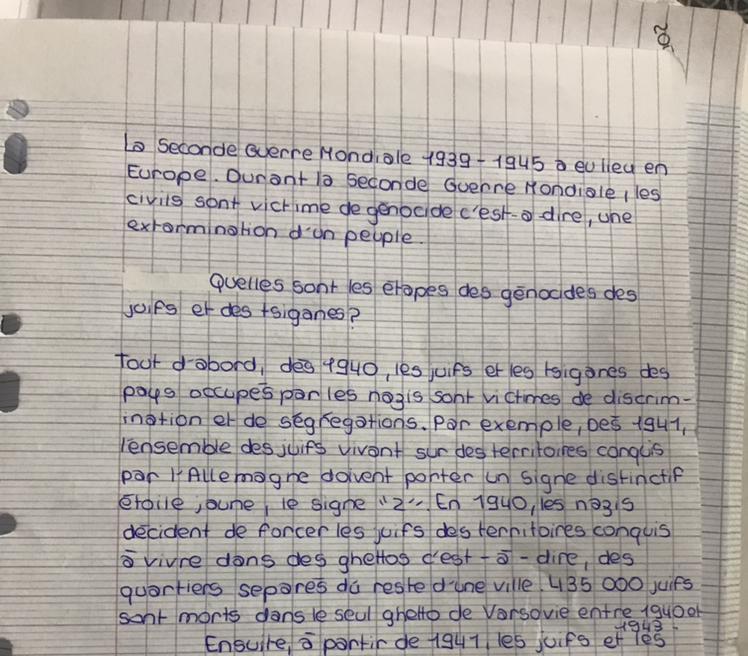 20
La Seconde Guerre Mondiale 1939-1945 a eu lieu en
Europe. Durant la Seconde Guerre Mondiale, les
civils sont victime de génocide c'est-à dire, une
extermination d'un peuple.
Quelles sont les étapes des génocides des
juifs et des tsiganes?
Tout d'abord, dès 1940, les juifs et les tsiganes des
pays occupés par les nazis sont victimes de discrim-
ination et de ségrégations. Par exemple, Dès 1941,
l'ensemble des juifs vivant sur des territoires conquis
par l'Allemagne doivent porter un signe distinctif
étoile jaune, le signe "2". En 1940, les nazis
décident de forcer les juifs des territoires conquis
à vivre dans des ghettos c'est-à-dire, des
quartiers séparés du reste d'une ville. 435 000 juifs
sont morts dans le seul ghetto de Varsovie entre 1940 et
1943.
Ensuite, à partir de 1941, les juifs et les